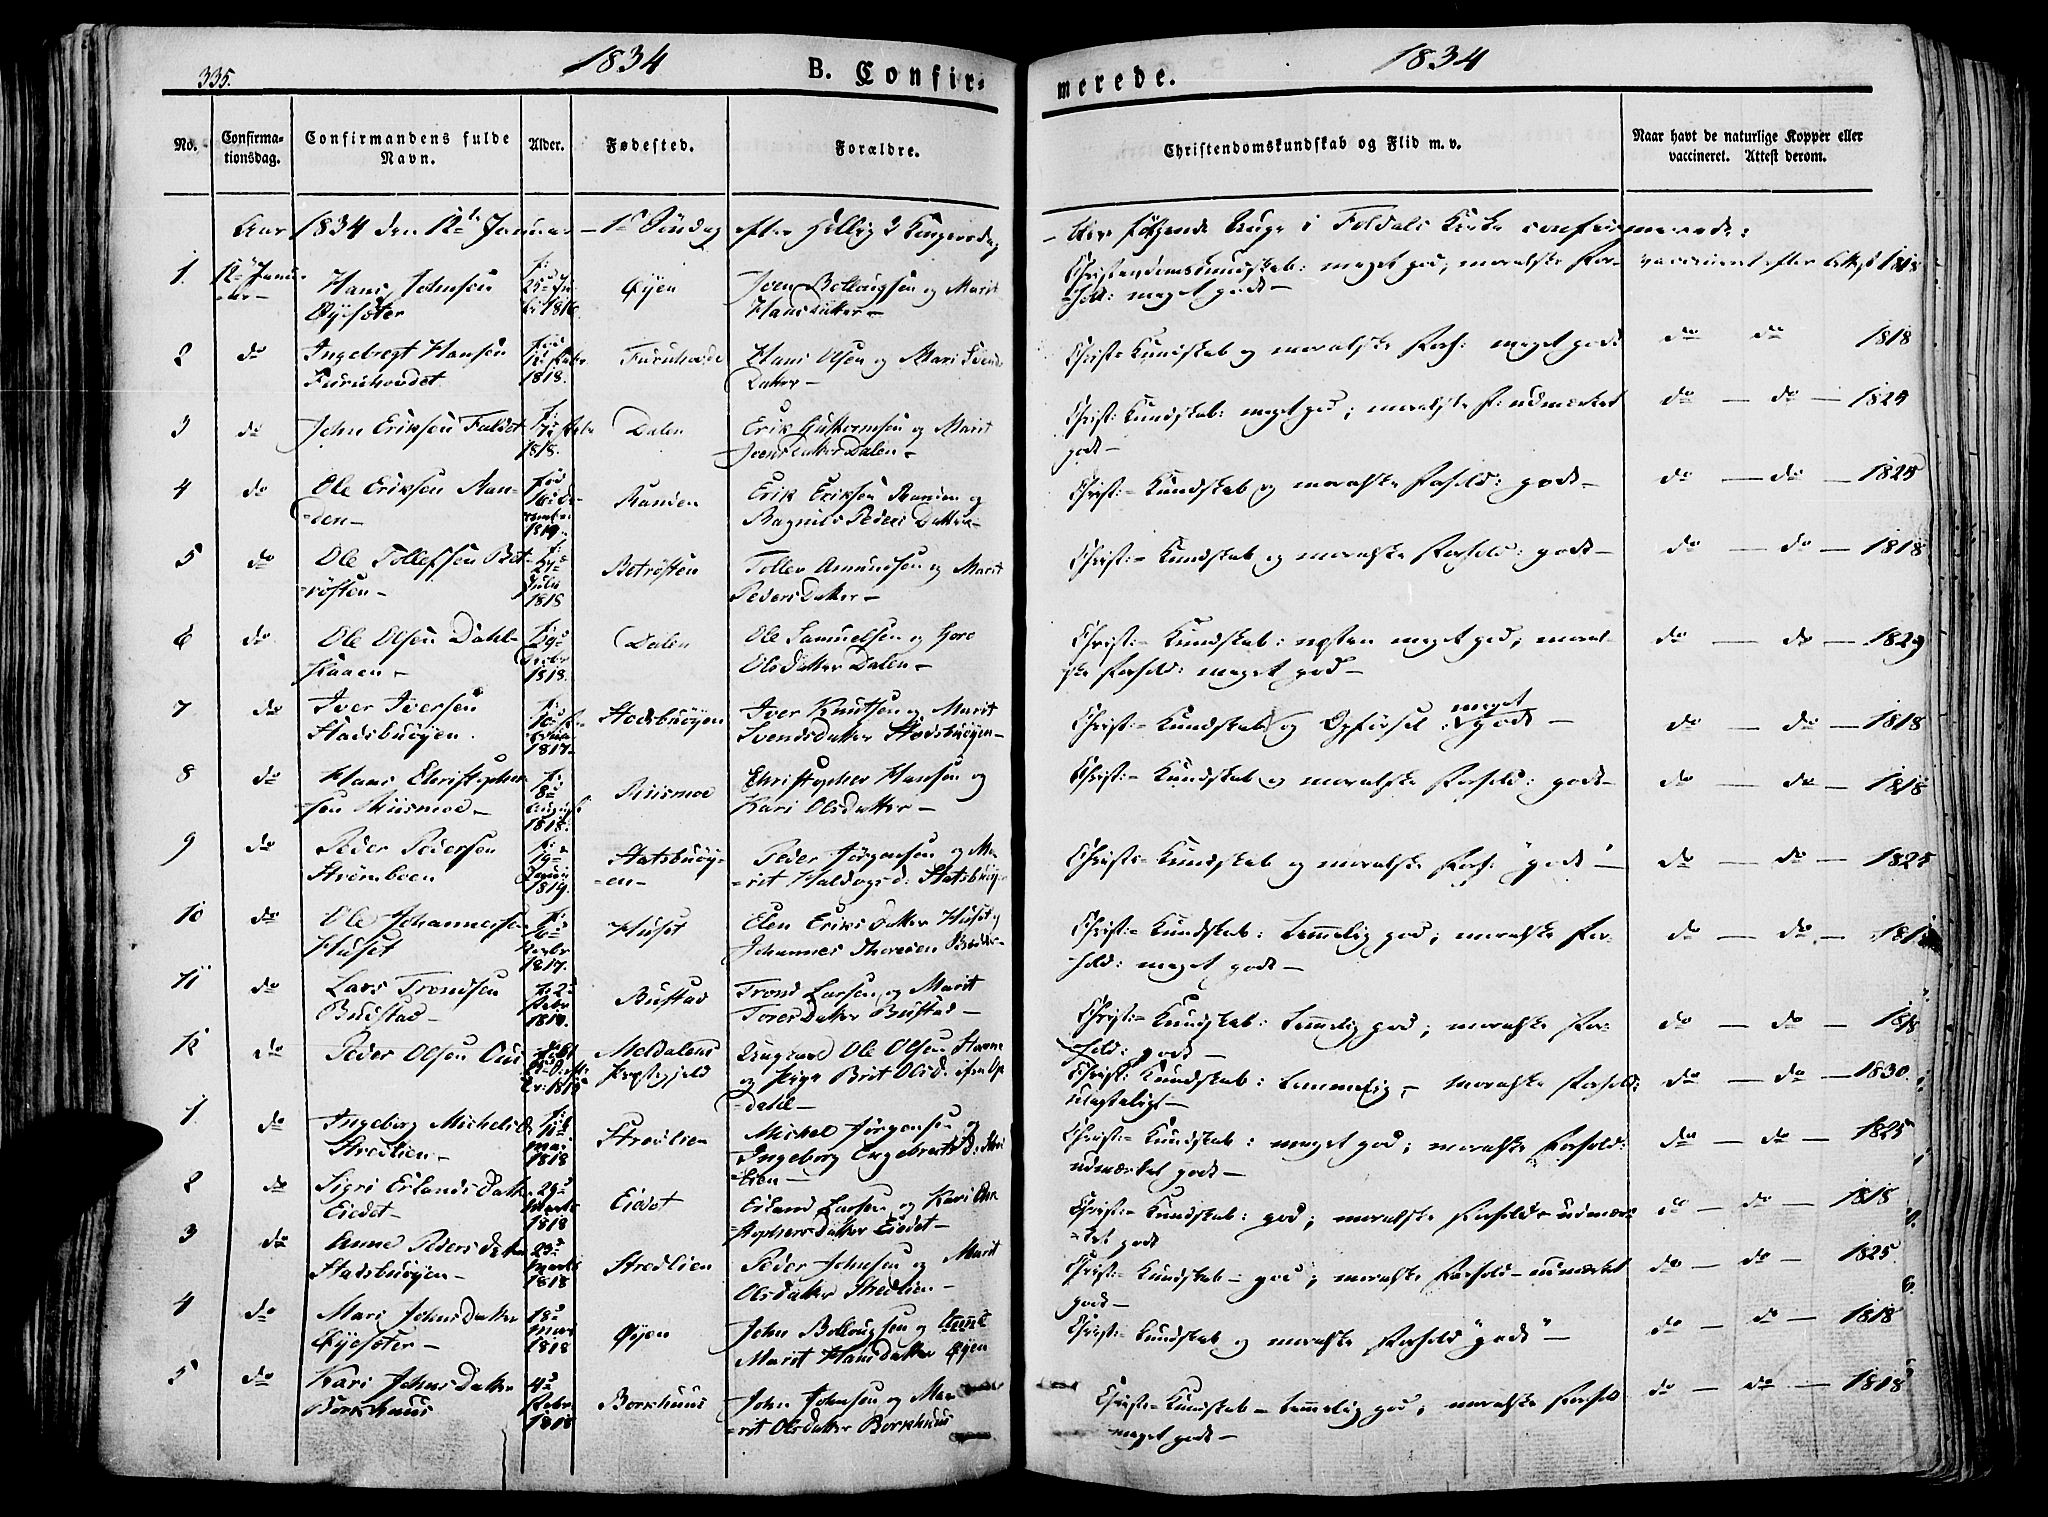 335.
1834
B. Confir-
merede.
1834
No.
Confirma-
tionsdag.
Confirmandens fulde
Navn.
Alder.
Fødested.
Forældre.
Christendomskundskab og Flid m. v.
Naar havt de naturlige Kopper eller
vaccineret. Attest derom.
Aar 1834 den 12te Januar – 1ste Søndag efter Hellig 3 Kongersdag
– ere følgende Unge i Foldals Kirke confirmerede:
1. 12te Janu-
ar –
Hans Johnsen
Øysæter
1816
Øyen
Joen Bollougsen og Marit
Hansdatter –
Christendomskundskab: meget god, moralske For-
hold: meget godt –
vaccineret efter Attest 1818
2 do
Ingebregt Hansen
Furuhovdet
Febr
1818.
Furuhovde
Hans Olsen og Mari Svends
Datter –
Christ:- Kundskab og moralske Forh: meget godt
do do 1818
3 do
John Eriksen Faldet
Febr
1818.
Dalen
Erik Guttormsen og Marit
Joensdatter Dalen –
Christ: Kundskab: meget god; moralske F: udmærket
godt –
do – do – 1825
4 do
Ole Eriksen Ran-
den –
1819
Randen
Erik Eriksen Randen og
Ragnild Peders Datter –
Christ:- Kundskab og moralske Forhold: godt –
do – do – 1825
5 do
Ole Tollefsen Bet-
røsten –
Julii
1818
Betrøsten
Tollev Amundsen og Marit
Pedersdatter –
Christ:- Kundskab og moralske Forhold: godt –
do – do – 1818
6 do
Ole Olsen Dahl-
Kaaen –
1818.
Dalen
Ole Samuelsen og Gore
Olsdatter Dalen –
Christ:- Kundskab: næsten meget god; moral-
ske Forhold: meget god –
do – do – 1829
7 do
Iver Iversen
Stadsbuøyen.
1817.
Stadsbuøyen
Iver Knutsen og Marit
Svendsdatter Stadsbuøyen –
Christ:- Kundskab og Opførsel: meget godt –
do – do – 1818
8 do
Hans Christopher-
sen Riismoe –
August
1818.
Riismoe
Christopher Hansen og
Kari Olsdatter –
Christ:- Kundskab og moralske Forhold: godt –
do – do – 1818
9 do
Peder Pedersen
Strømboen
1819
Statsbuøy-
en –
Peder Jørgensen og Ma-
rit Haldogsd: Statsbuøy-
Christ:- Kundskab og moralske Forh: "godt" –
do – do – 1825
10 do
Ole Johannesen
Huset
1817.
Huset
Elen Eriks Datter Huset og
Johannes Thoresen
Christ:- Kundskab: temmelig god; moralske For-
hold: meget godt –
do – do –
11 do
Lars Trondsen
Buustad –
Febr
1819.
Bustad
Trond Larsen og Marit
Toresdatter Bustad –
Christ:- Kundskab: temmelig god; moralske For-
hold: godt –
do – do – 1818
12 do
Peder Olsen
Meldalens
Præstegjeld
Ungkarl Ole Olsen
og Pige Brit Olsd.
-dahl –
Christ: Kundskab: temmelig, – moralske Forhold:
ulasteligt –
do – do – 1830.
1. do
Ingeborg Michelsd:
Stredlien –
Mai
1818
Stredlien
Michel Jørgensen og
Ingeborg Engebretsd: Stred-
lien –
Christ:- Kundskab: meget god; moralske Forhold:
udmærket godt –
do – do – 1825
2 do
Sigri Erlands Datter
Eidet –
Marts
1818
Eidet
Erland Larsen og Kari Chri-
stophersdatter Eidet –
Christ:- Kundskab: god; moralske Forhold – udmær-
ket godt
do – do – 1818
3 do
Anne Pedersdatter
Stadsbuøyen –
Marts
1818
Stredlien
Peder Johnsen og Marit
Olsdatter Stredlien –
Christ:- Kundskab – god; moralske Forhold – udmærket
godt –
do – do – 1825
4 do
Mari Johnsdatter
Øyesæter –
Mai
1818
Øyen
John Bollougsen og
Marit Hansdatter Øyen
Christ:- Kundskab og moralske Forhold "godt" –
do – do – 1818
5 do
Kari Johnsdatter
Borkhuus
Febr
1818
Borkhuus
John Johnsen og Ma-
rit Olsdatter Borkhuus
Christ:- Kundskab – temmelig god; moralske Forhold
meget godt –
do – do – 1818